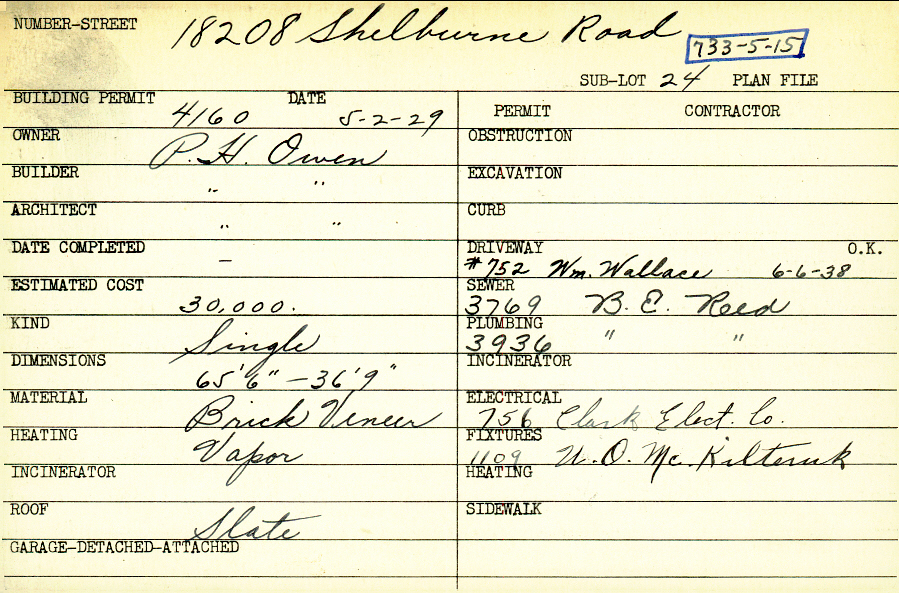 NUMBER-STREET 18208 Shelburne Road
733-5-15
SUB-LOT 24 PLAN FILE
BUILDING PERMIT 4160 DATE 5-2-29
OWNER P. H. Owen
BUILDER " "
ARCHITECT " "
DATE COMPLETED —
ESTIMATED COST 30,000.
KIND Single
DIMENSIONS 65'6" — 36'9"
MATERIAL Brick Veneer
HEATING Vapor
INCINERATOR
ROOF Slate
GARAGE-DETACHED-ATTACHED
PERMIT CONTRACTOR
OBSTRUCTION
EXCAVATION
CURB
DRIVEWAY O.K.
#752 Wm. Wallace 6-6-38
SEWER
3769 B. E. Reed
PLUMBING
3936 " "
INCINERATOR
ELECTRICAL
756 Clark Elect. Co.
FIXTURES
1109 U. O.
HEATING
SIDEWALK